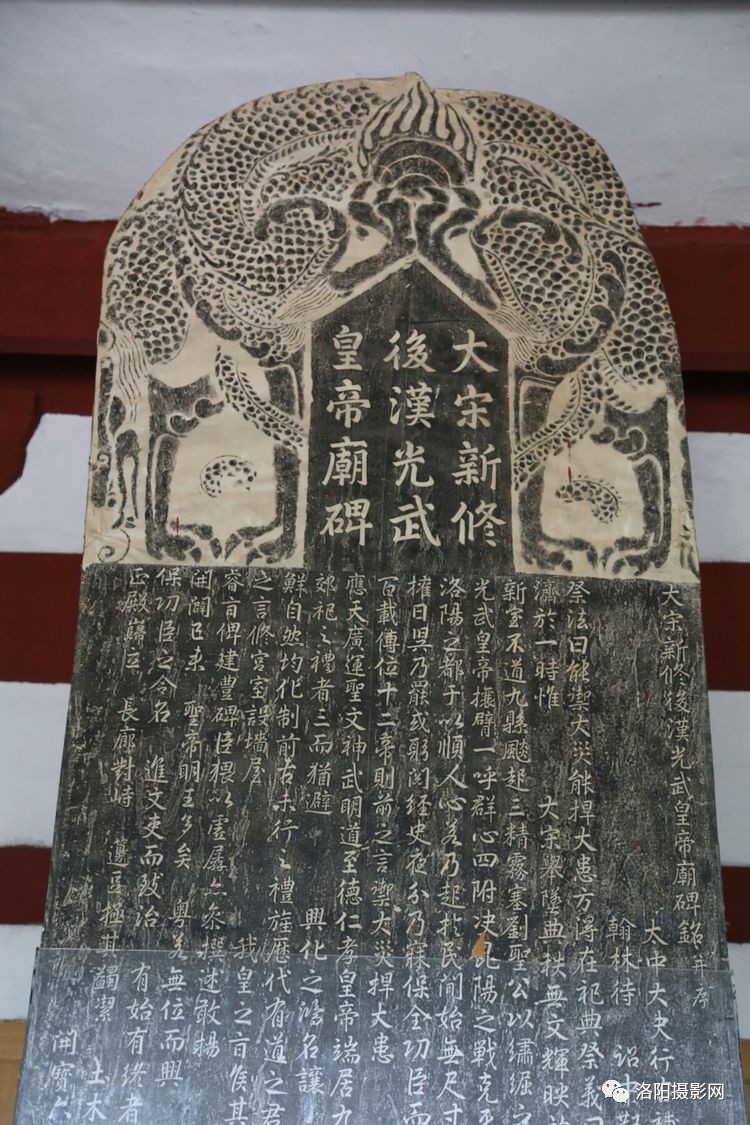 大宋新修
後漢光武
皇帝廟碑
大宋新修後漢光武皇帝廟碑銘并序
太中大夫行
翰林待詔
祭法曰能禦大災能捍大患方得在祀典祭義
濟於一時惟 大宋舉墜典秩無文輝映
新室不道九縣飈起三精霧塞劉聖公以繡䘿之
光武皇帝攘臂一呼群心四附決昆陽之戰克
洛陽之都于以順人心若乃起於民間始無尺寸
推日昃乃罷或躬閱經史夜分乃寐保全功臣而
百載傳位十二帝則前之言禦大災捍大患
應天廣運聖文神武明道至德仁孝皇帝端居九
郊祀之禮者三而猶避 興化之鴻名讓
鮮自然均化制前古未行之禮旌歷代有道之君
之言修宮室設墻屋 我皇之旨俟其
睿旨俾建豊碑臣猥以虛孱亦忝撰述敢揚
開闢已来 聖帝明王多矣 粤若無位而興
保功臣之令名 進文吏而致治 有始有緒者
正殿巋立 長廊對峙 籩豆極其蠲潔 土木
開寶六
洛阳摄影网